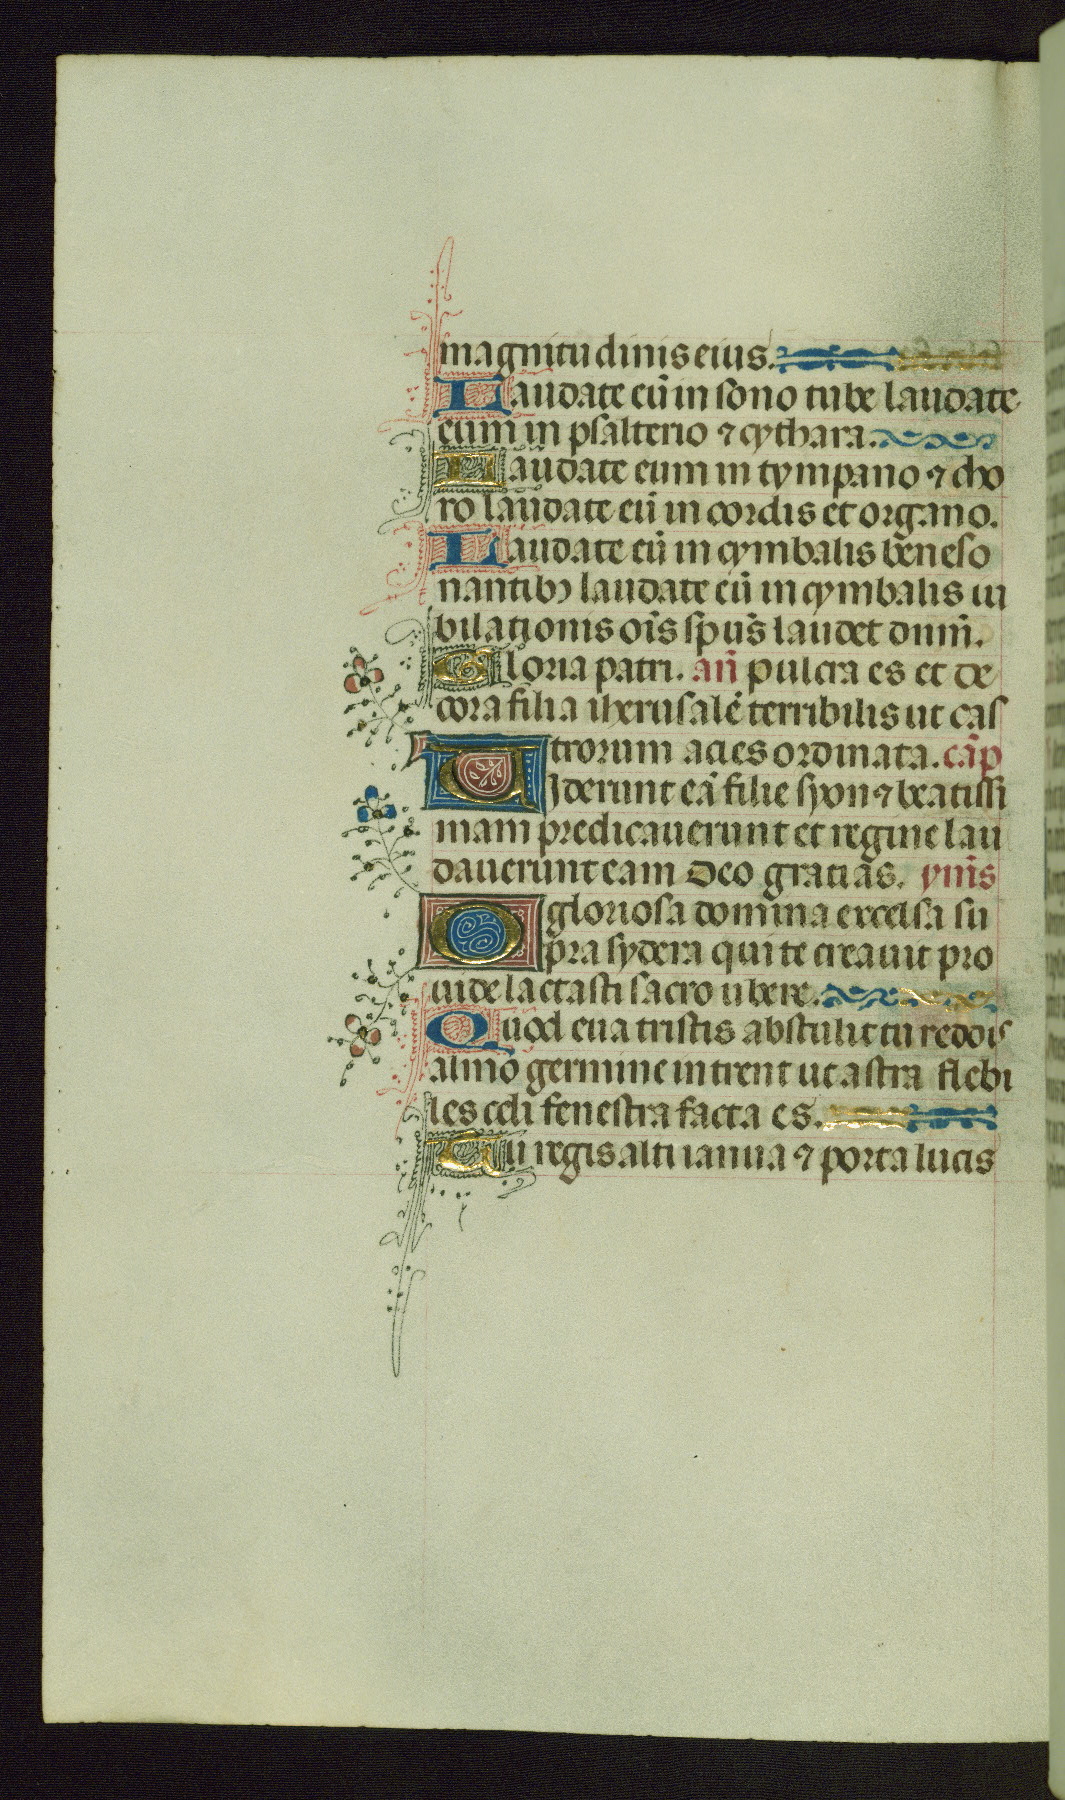 magnitudinis eius.
Laudate eū in sono tube laudate
eum in psalterio ⁊ cythara.
Laudate eum in tympano ⁊ cho
ro laudate eū in cordis et organo.
Laudate eū in cymbalis bene so
nantibꝫ laudate eū in cymbalis iu
bilationis oīs spūs laudet dnm̄.
Gloria patri. an̄ pulcra es et de
cora filia iherusalē terribilis ut cas
trorum acies ordinata. cāp
Viderunt eā filie syon ⁊ beatissi
mam predicauerunt et regine lau
dauerunt eam Deo gratias. ymīs
O gloriosa domina excelsa su
pra sydera qui te creauit pro
uide lactasti sacro ubere.
Quod eua tristis abstulit tu reddis
almo germine intrent ut astra flebi
les celi fenestra facta es.
Tu regis alti ianua ⁊ porta lucis